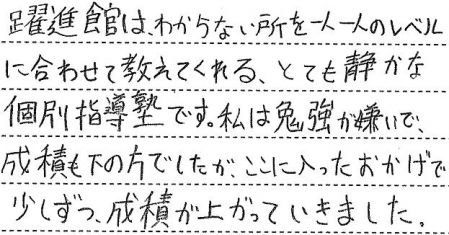 躍進館は、わからない所を一人一人のレベル
に合わせて教えてくれる、とても静かな
個別指導塾です。私は勉強が嫌いで、
成積も下の方でしたが、ここに入ったおかげで
少しずつ、成積が上がっていきました。